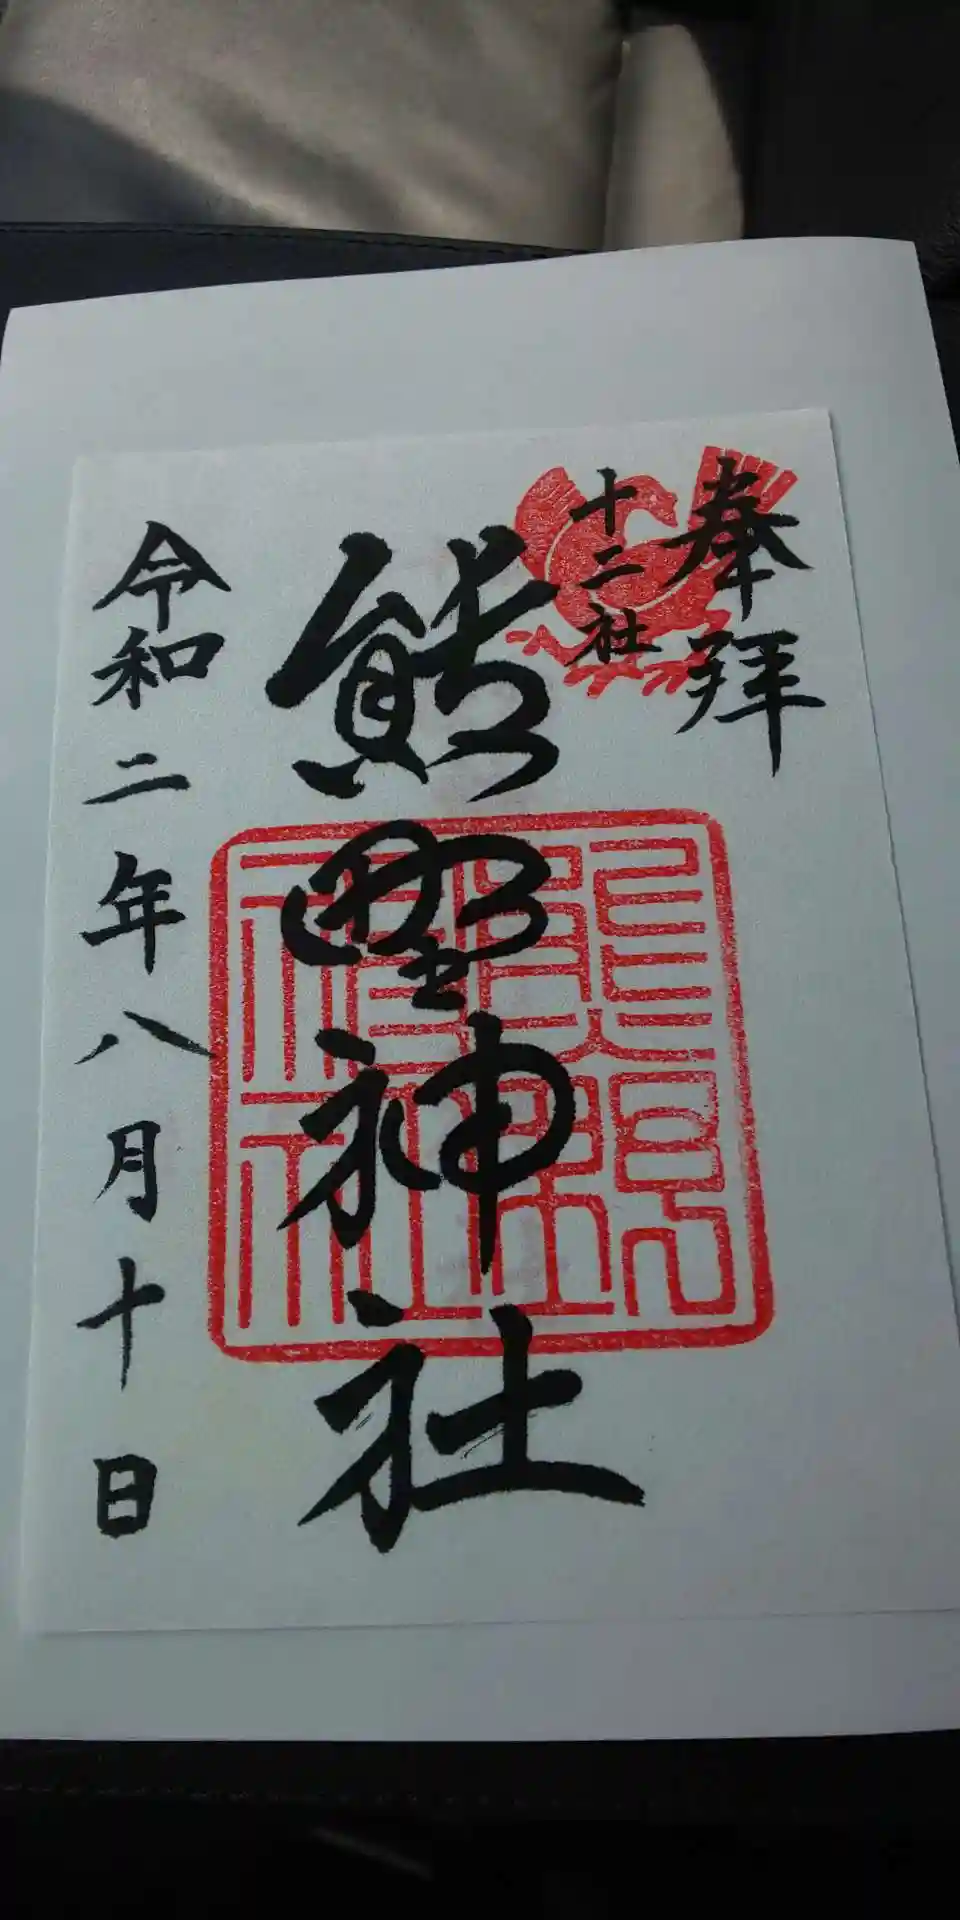 奉拝
十二社
熊野神社
令和二年八月十日